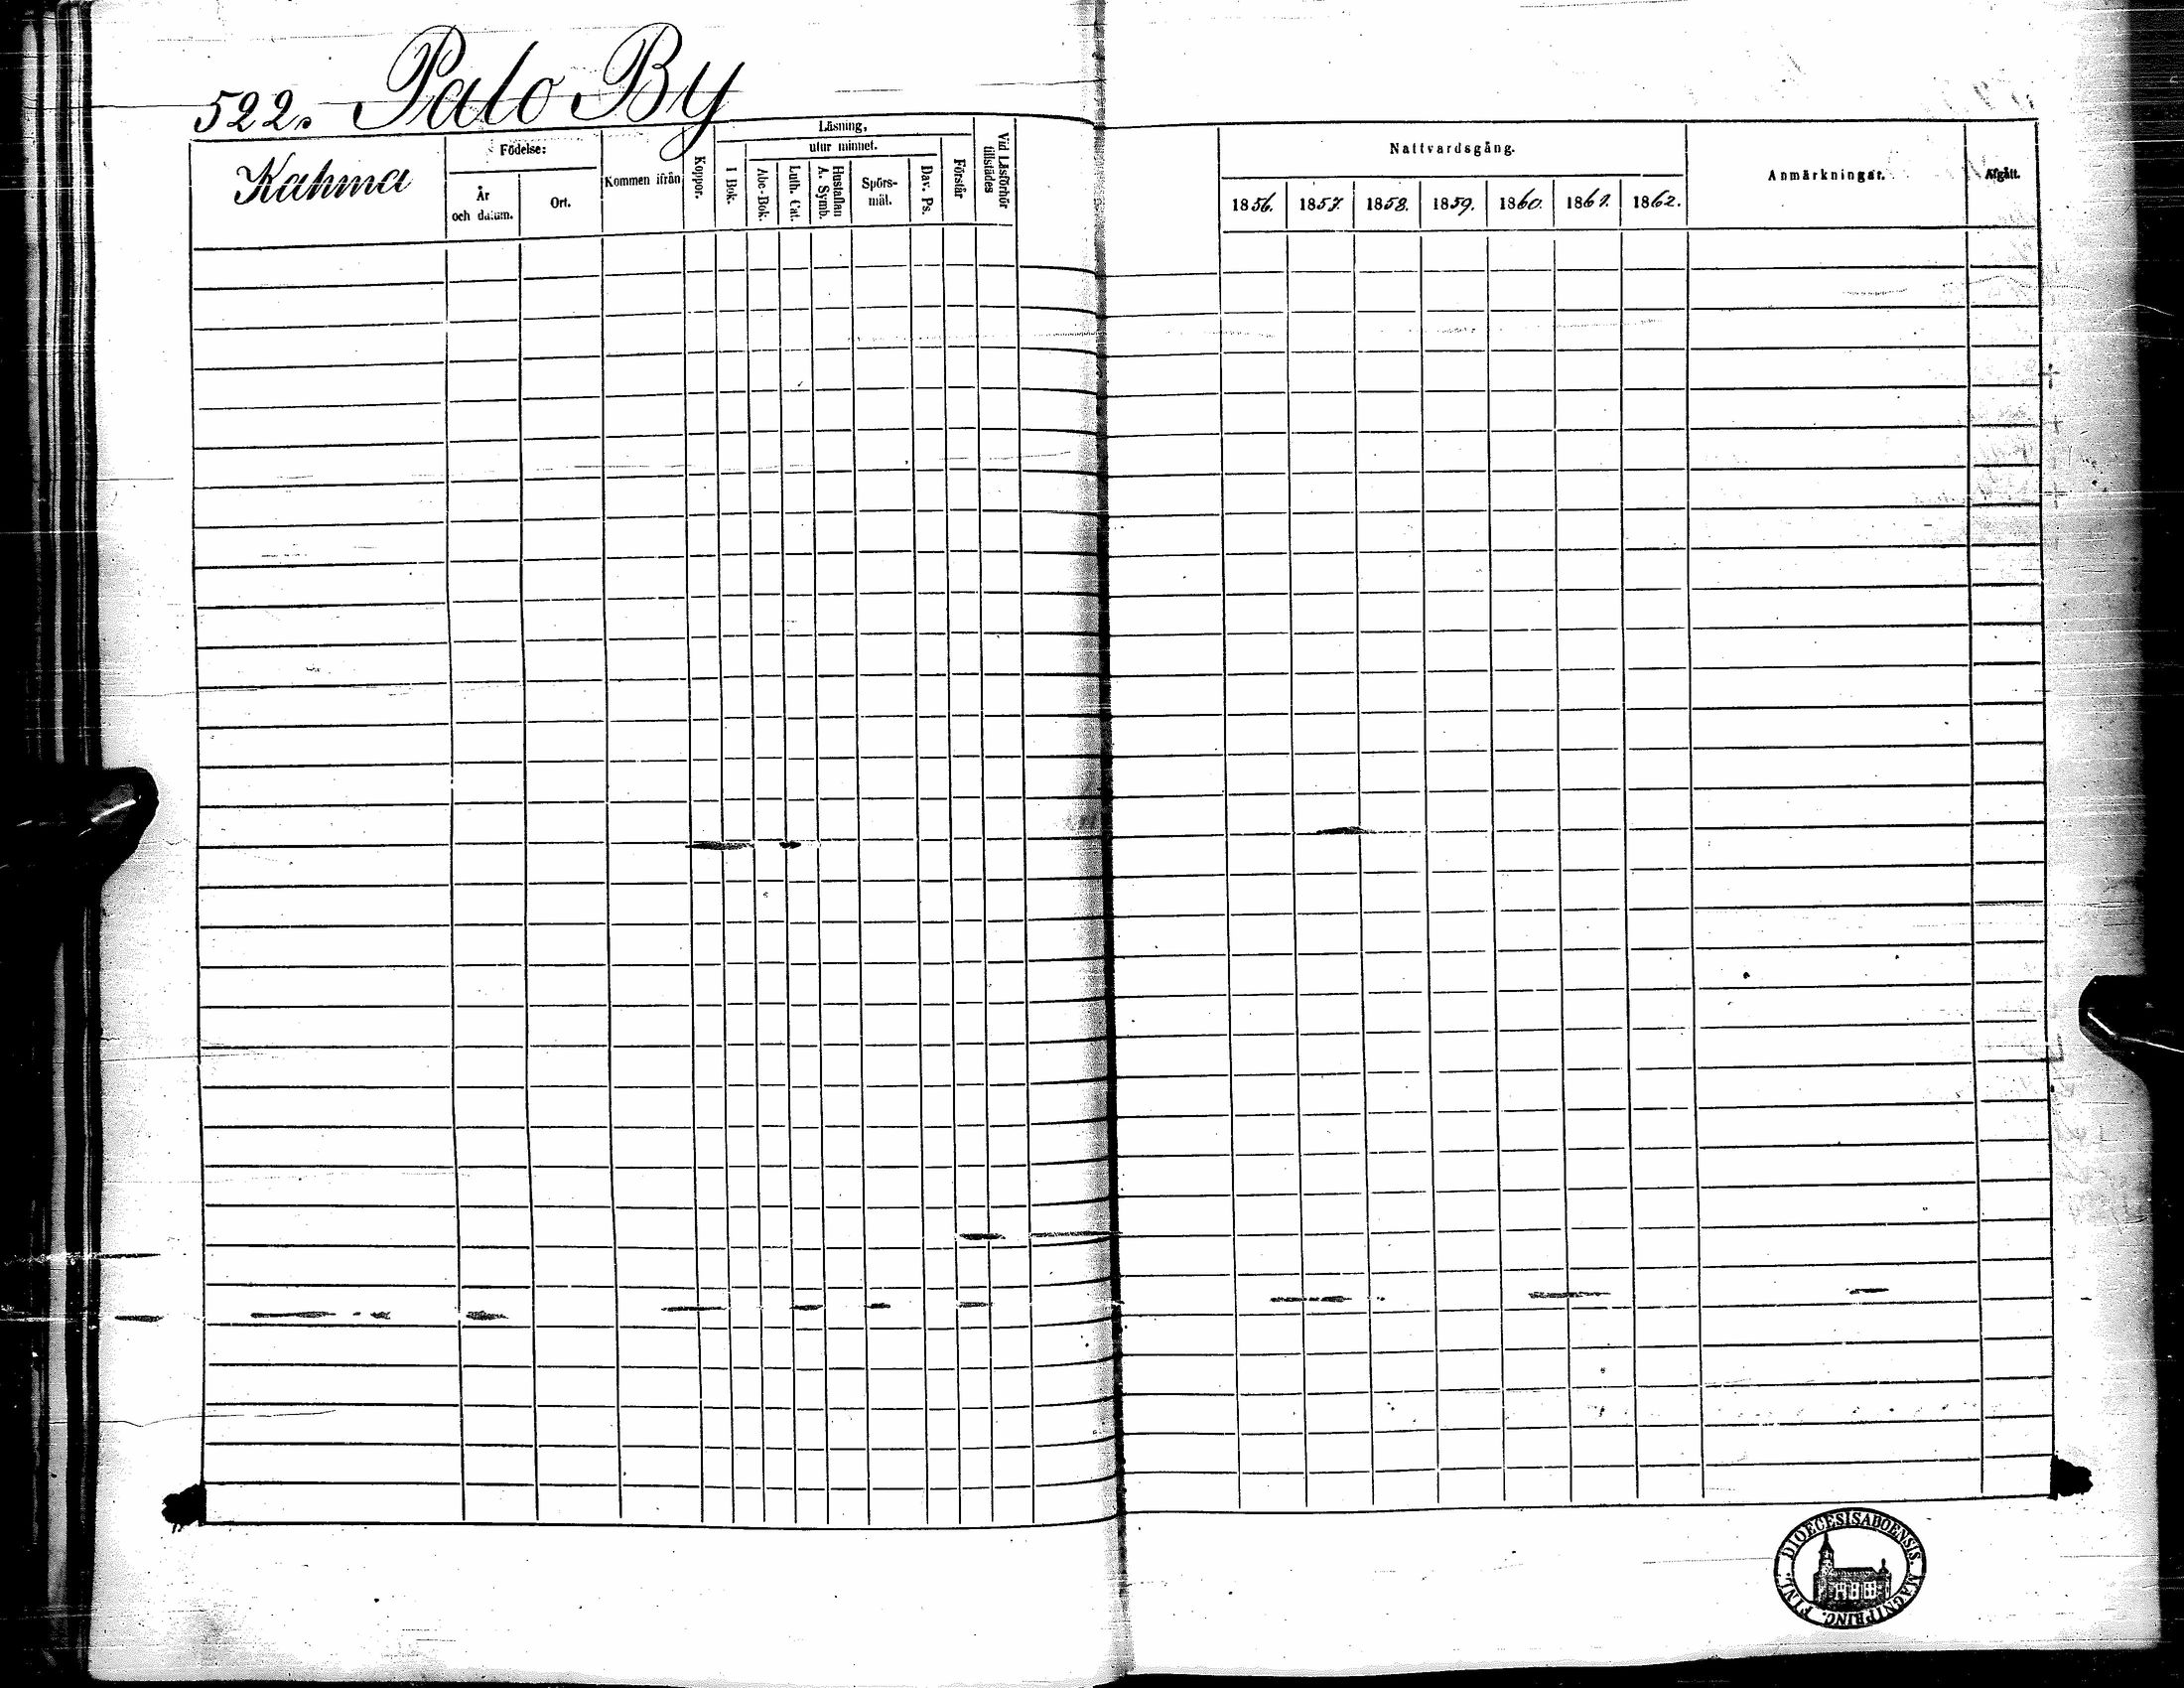 522. Palo By
Kahma
Födelse:
År
och datum.
Ort.
Kommen ifrån
Koppor.
Läsning,
utur minnet.
I Bok.
Abc-Bok.
Luth. Cat.
Hustaflan
A. Symb.
Spörs-
mål.
Dav. Ps.
Förstår
Vid Läsförhör
tillstädes
Nattvardsgång.
1856. 1857. 1858. 1859. 1860. 1861. 1862.
Anmärkningar.
Afgått.
DIOECESIS ABOENSIS. MAGNI PRINC. FINL.